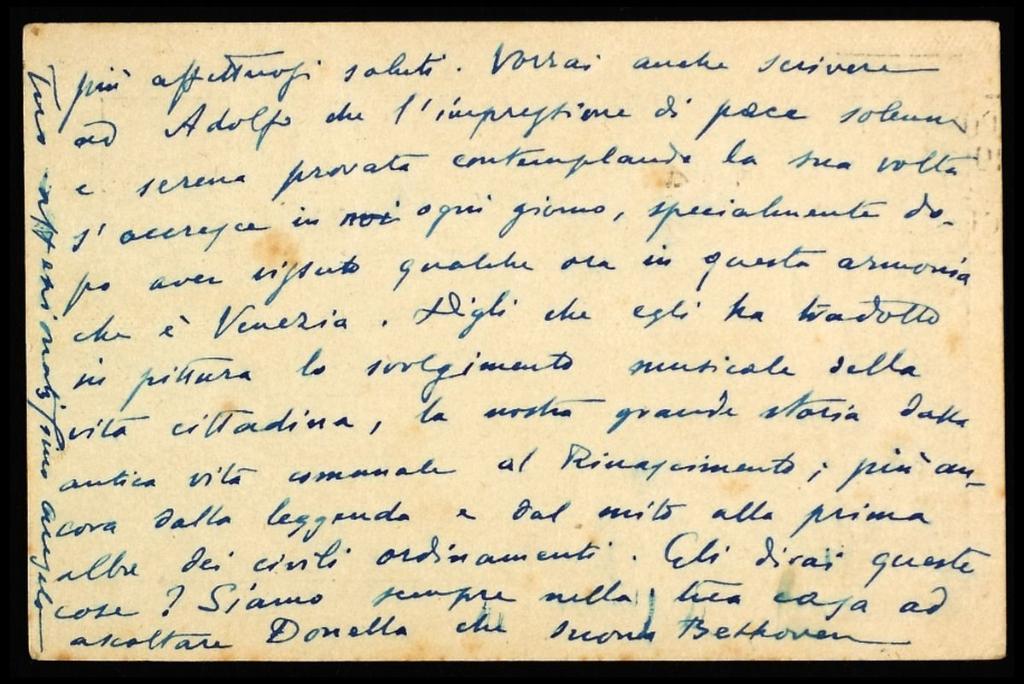 più affettuosi saluti. Vorrai anche scrivere
ad Adolfo che l'impressione di pace solenne
e serena provata contemplando la sua volta
s'accresce in noi ogni giorno, specialmente do-
po aver vissuto qualche ora in questa armonia
che è Venezia. Digli che egli ha tradotto
in pittura lo svolgimento musicale della
vita cittadina, la nostra grande storia dalla
antica vita comunale al Rinascimento; più an-
cora dalla leggenda e dal mito alla prima
albe dei civili ordinamenti. Gli dirai queste
cose? Siamo sempre nella tua casa ad
ascoltare Donella che suona Bethoven
Tuo affezionatissimo Angelo